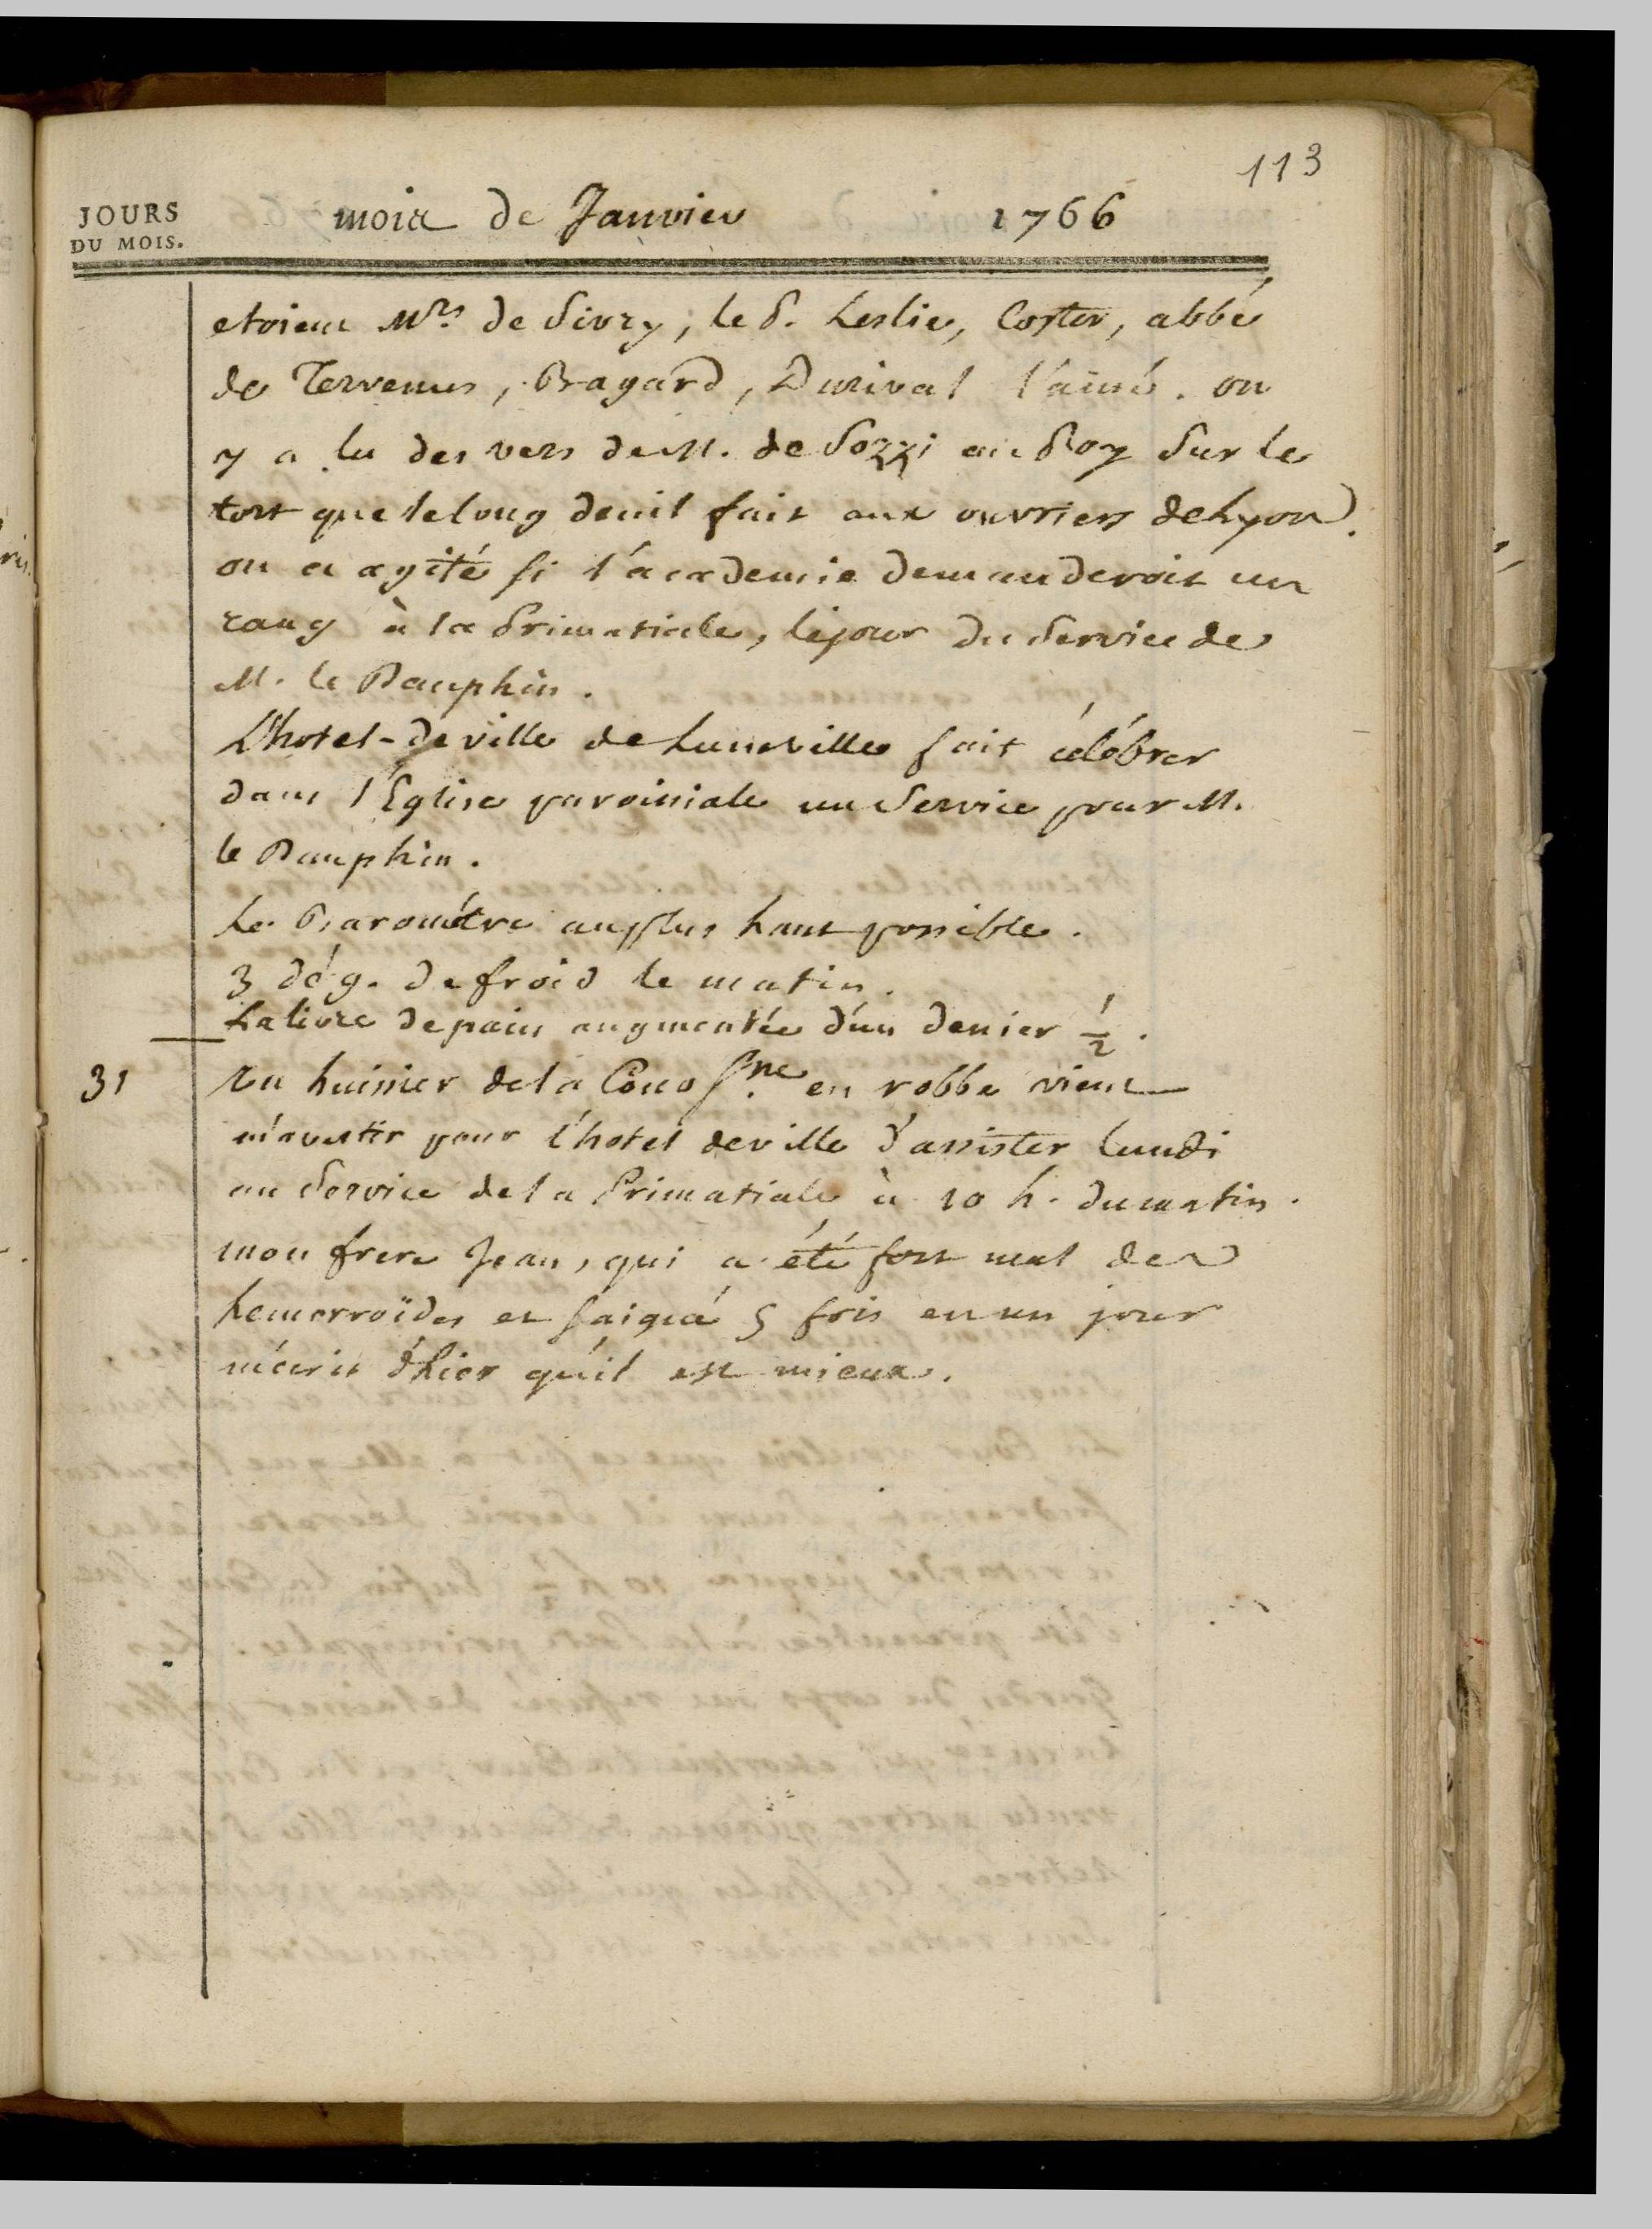 113
JOURS
DU MOIS.
mois de Janvier 1766
etoient Mrs. de Sivry, le P. Leslie, Coster, abbé
de Tervenus, Bagard, Durival l'ainé. on
y a lu des vers de M. de Sozzi au Roy sur le
tort que le long deuil fait aux ouvriers de Lyon.
on a agité si l'academie demanderoit un
rang à la Primatiale, le jour du Service de
M. le Dauphin.
L'hotel-de ville de Luneville fait célébrer
dans l'Eglise paroissiale un Service pour M.
le Dauphin.
Le Barométre au plus haut possible.
3 dég. de froid le matin.
La livre de pain augmentée d'un denier 1/2.
31 Un huissier de la Cour Sne. en robbe vient
m'avertir pour l'hotel de ville d'assister lundi
au Service de la Primatiale à 10 h. du matin.
mon frere Jean, qui a été fort mal des
hemorroïdes et saigné 5 fois en un jour
m'écrit d'hier qu'il est mieux.